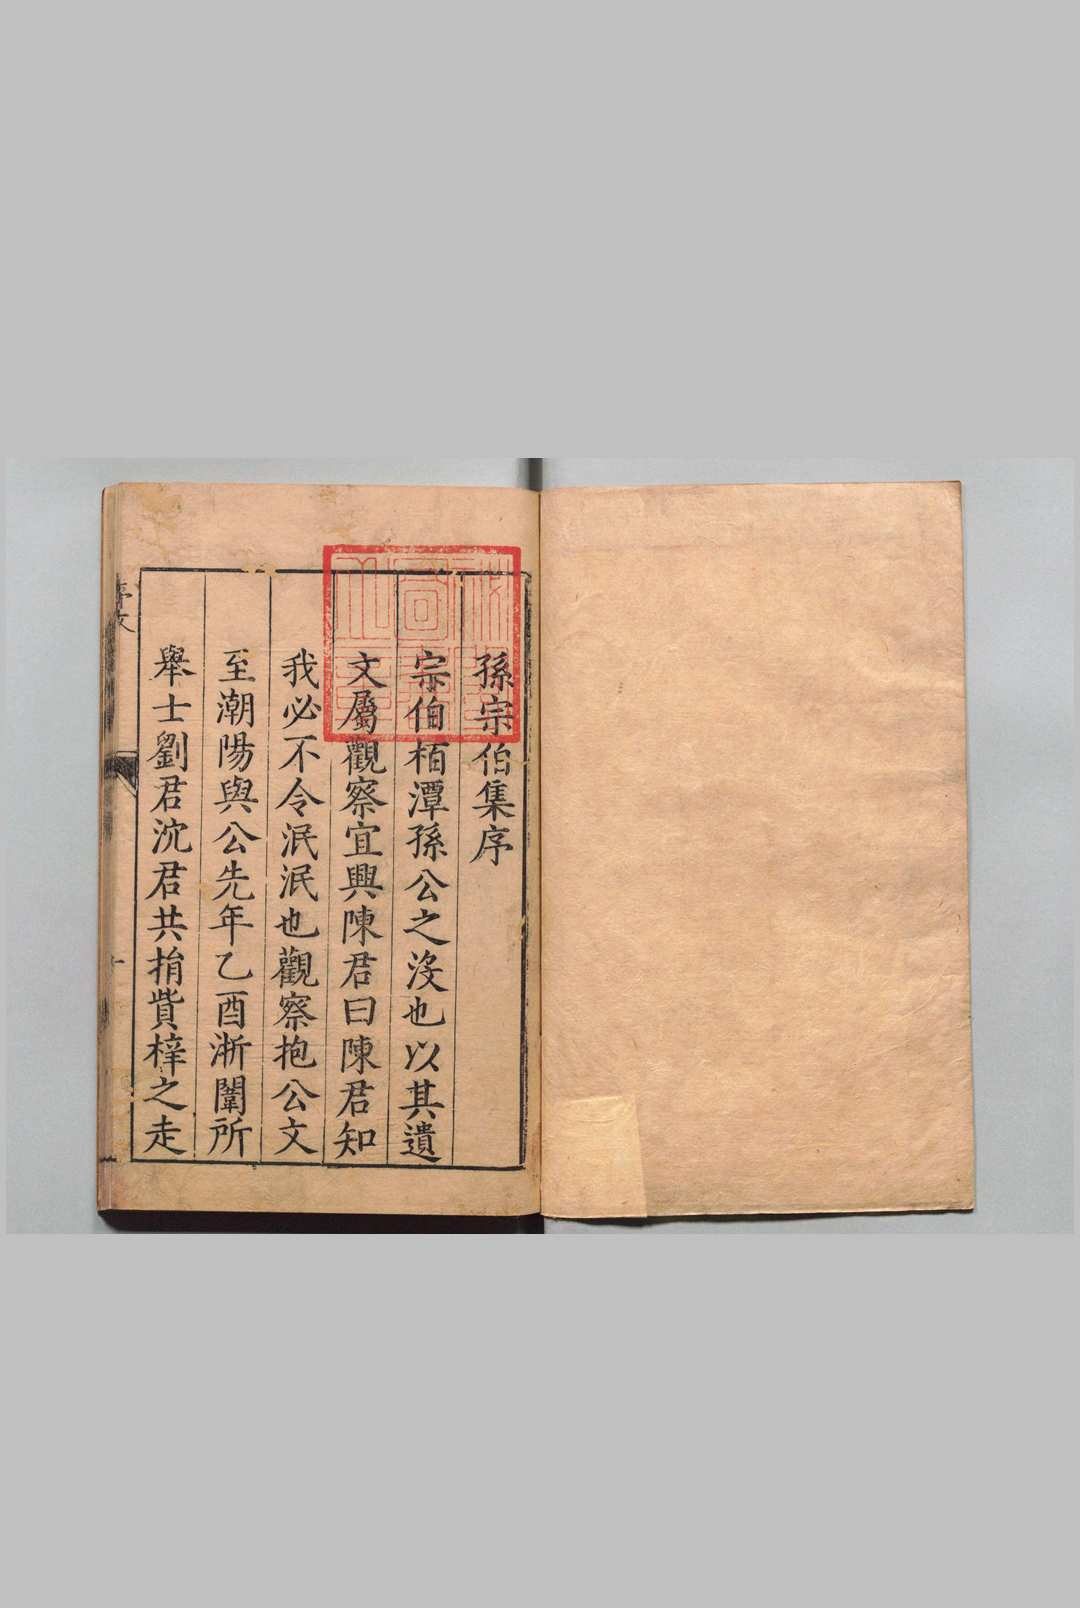 孫宗伯集序
宗伯栢潭孫公之沒也以其遺
文屬觀察宜興陳君曰陳君知
我必不令泯泯也觀察抱公文
至潮陽與公先年乙酉浙闈所
舉士劉君沈君共捐貲梓之走
序文